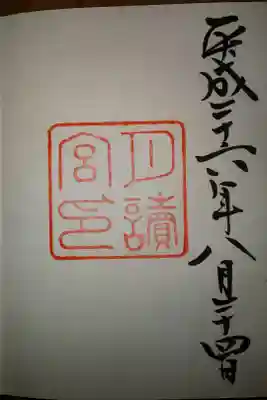 平成二十六年八月二十四日
月讀
宮印